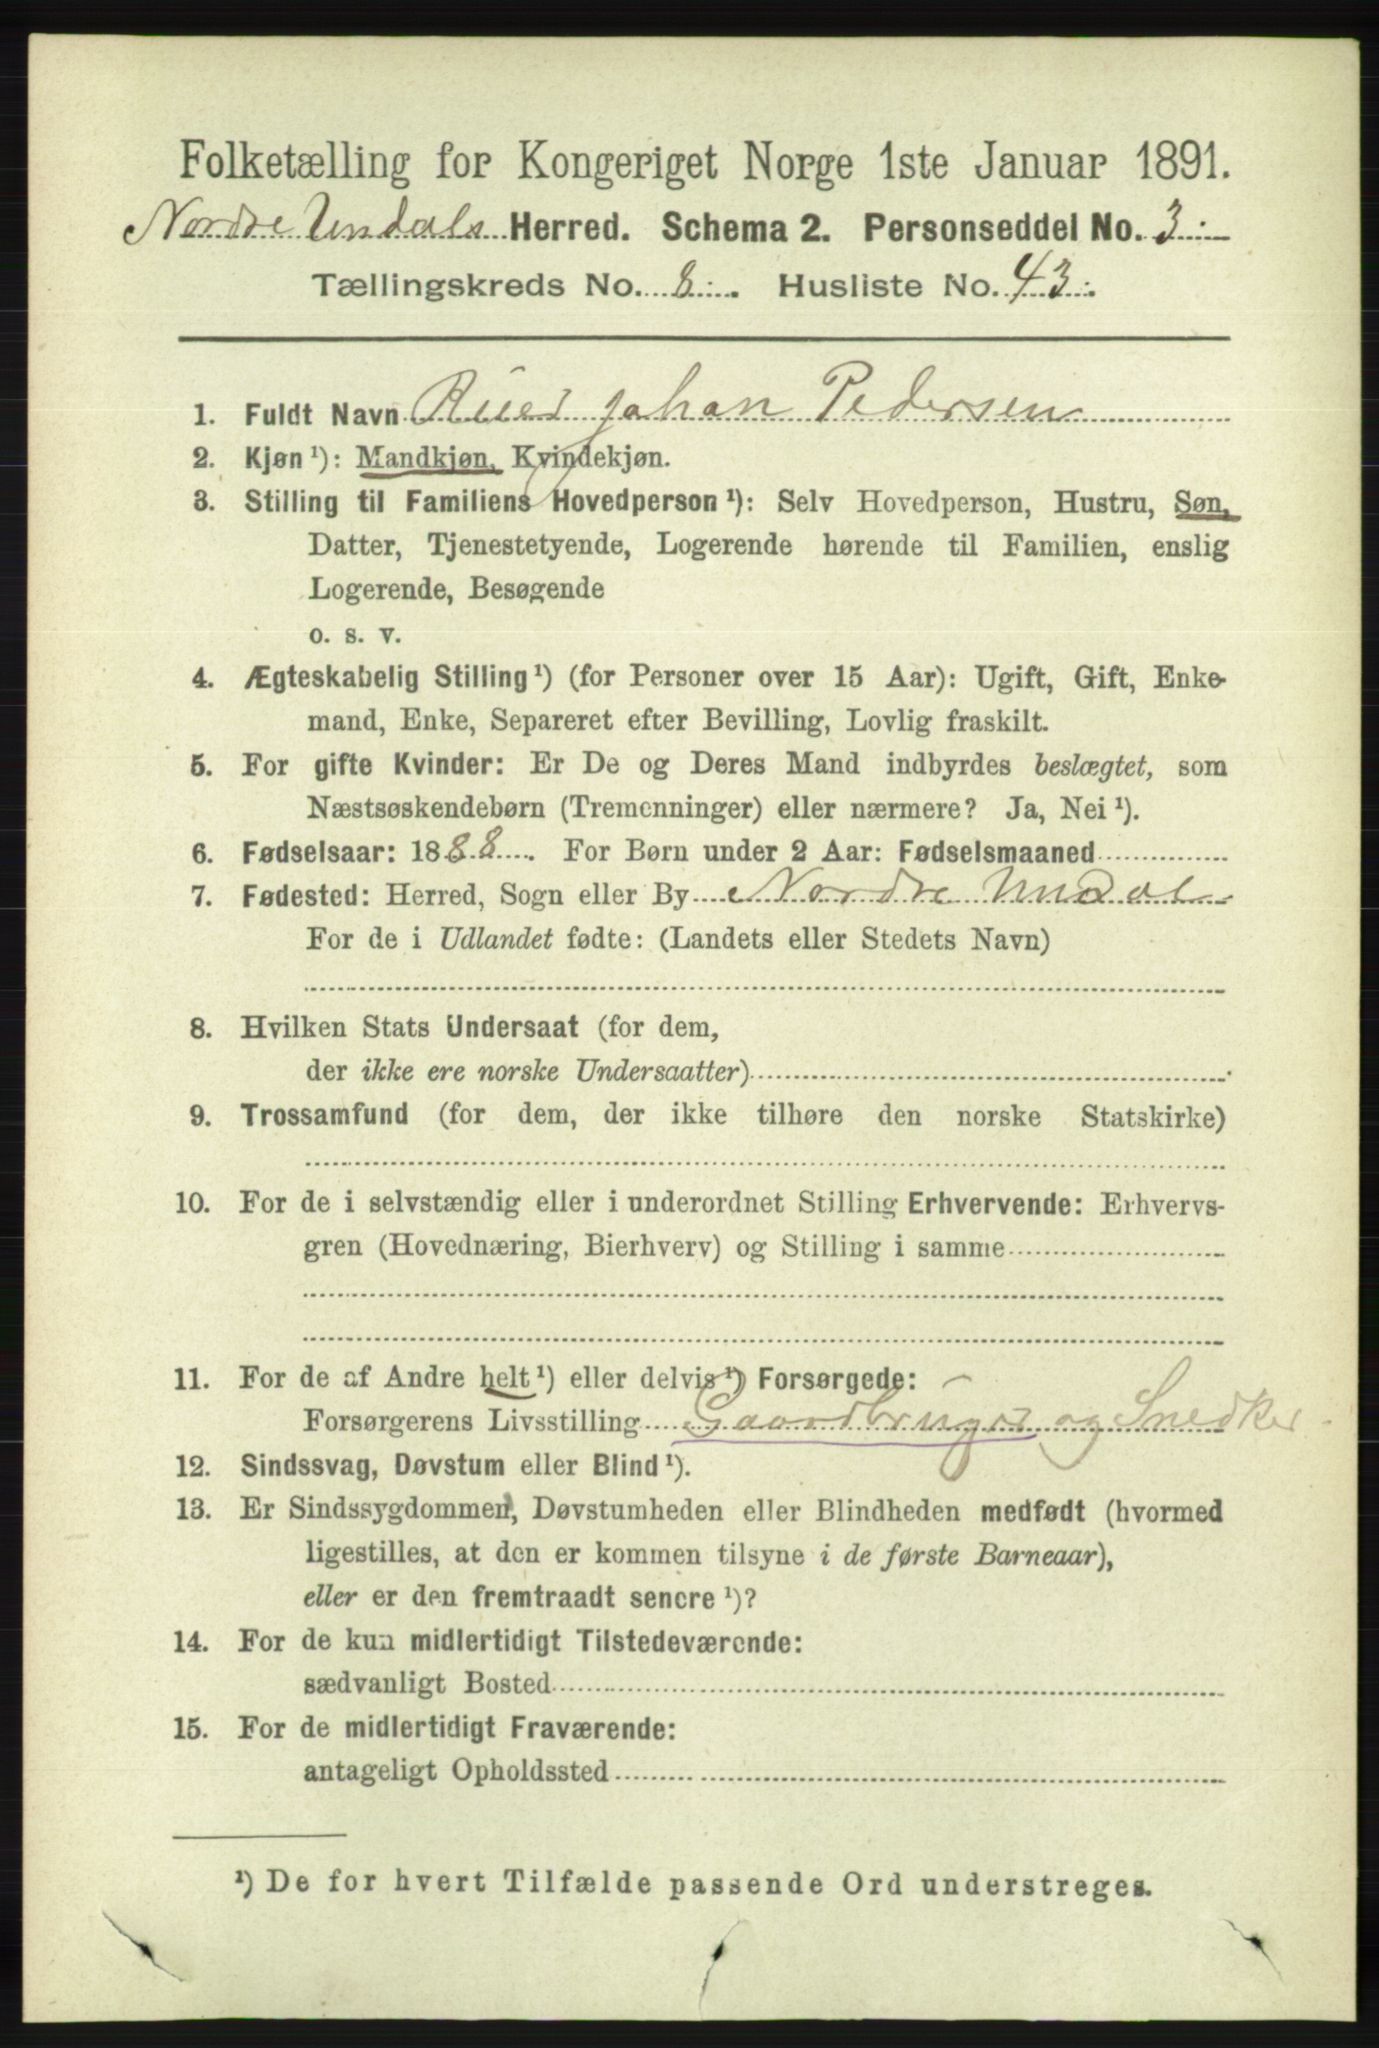 Folketælling for Kongeriget Norge 1ste Januar 1891.
Nordre Undals Herred. Schema 2. Personseddel No. 3.
Tællingskreds No. 8. Husliste No. 43.
1. Fuldt Navn Johan Pedersen
2. Kjøn ¹): Mandkjøn, Kvindekjøn.
3. Stilling til Familiens Hovedperson ¹): Selv Hovedperson, Hustru, Søn,
Datter, Tjenestetyende, Logerende hørende til Familien, enslig
Logerende, Besøgende
o. s. v.
4. Ægteskabelig Stilling ¹) (for Personer over 15 Aar): Ugift, Gift, Enke-
mand, Enke, Separeret efter Bevilling, Lovlig fraskilt.
5. For gifte Kvinder: Er De og Deres Mand indbyrdes beslægtet, som
Næstsøskendebørn (Tremenninger) eller nærmere? Ja, Nei ¹).
6. Fødselsaar: 1888. For Børn under 2 Aar: Fødselsmaaned
7. Fødested: Herred, Sogn eller By Nordre Undal
For de i Udlandet fødte: (Landets eller Stedets Navn)
8. Hvilken Stats Undersaat (for dem,
der ikke ere norske Undersaatter)
9. Trossamfund (for dem, der ikke tilhøre den norske Statskirke)
10. For de i selvstændig eller i underordnet Stilling Erhvervende: Erhvervs-
gren (Hovednæring, Bierhverv) og Stilling i samme
11. For de af Andre helt ¹) eller delvis ¹) Forsørgede:
Forsørgerens Livsstilling Gaardbruger og Snedker
12. Sindssvag, Døvstum eller Blind ¹).
13. Er Sindssygdommen, Døvstumheden eller Blindheden medfødt (hvormed
ligestilles, at den er kommen tilsyne i de første Barneaar),
eller er den fremtraadt senere ¹)?
14. For de kun midlertidigt Tilstedeværende:
sædvanligt Bosted
15. For de midlertidigt Fraværende:
antageligt Opholdssted
¹) De for hvert Tilfælde passende Ord understreges.